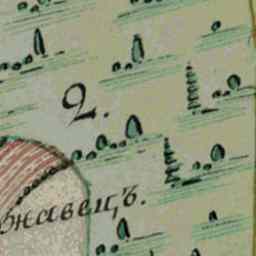 2.
ржавецъ.